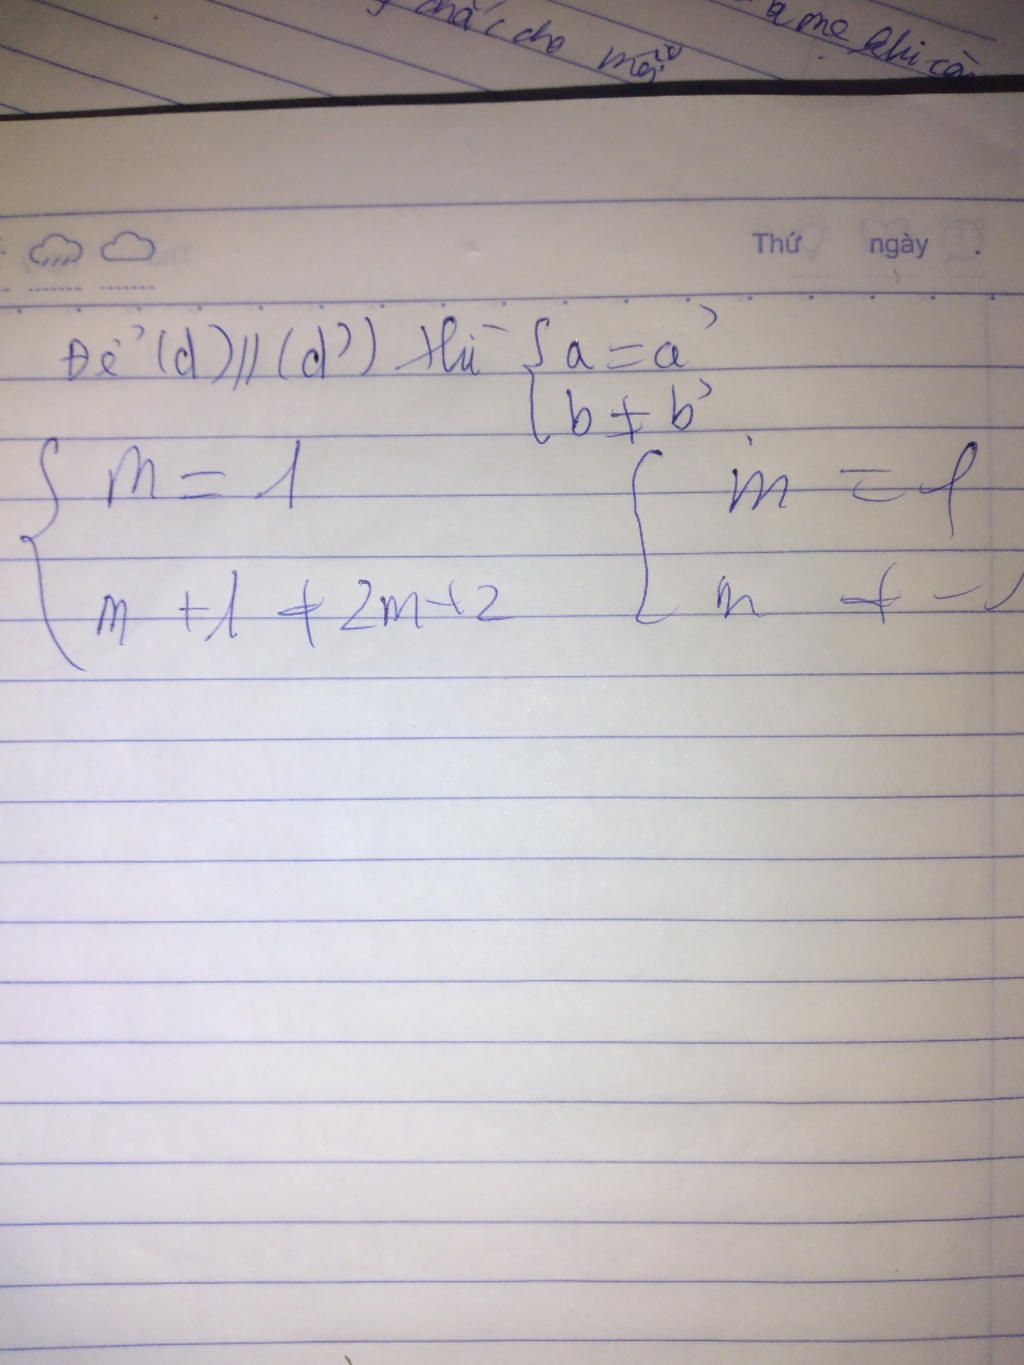 chắc cho mỗi
a mẹ khi cần
Thứ ngày .
Để (d) // (d') thì { a = a'
b ≠ b'
{ m = 1 { m = 1
m + 1 ≠ 2m + 2 m ≠ -1